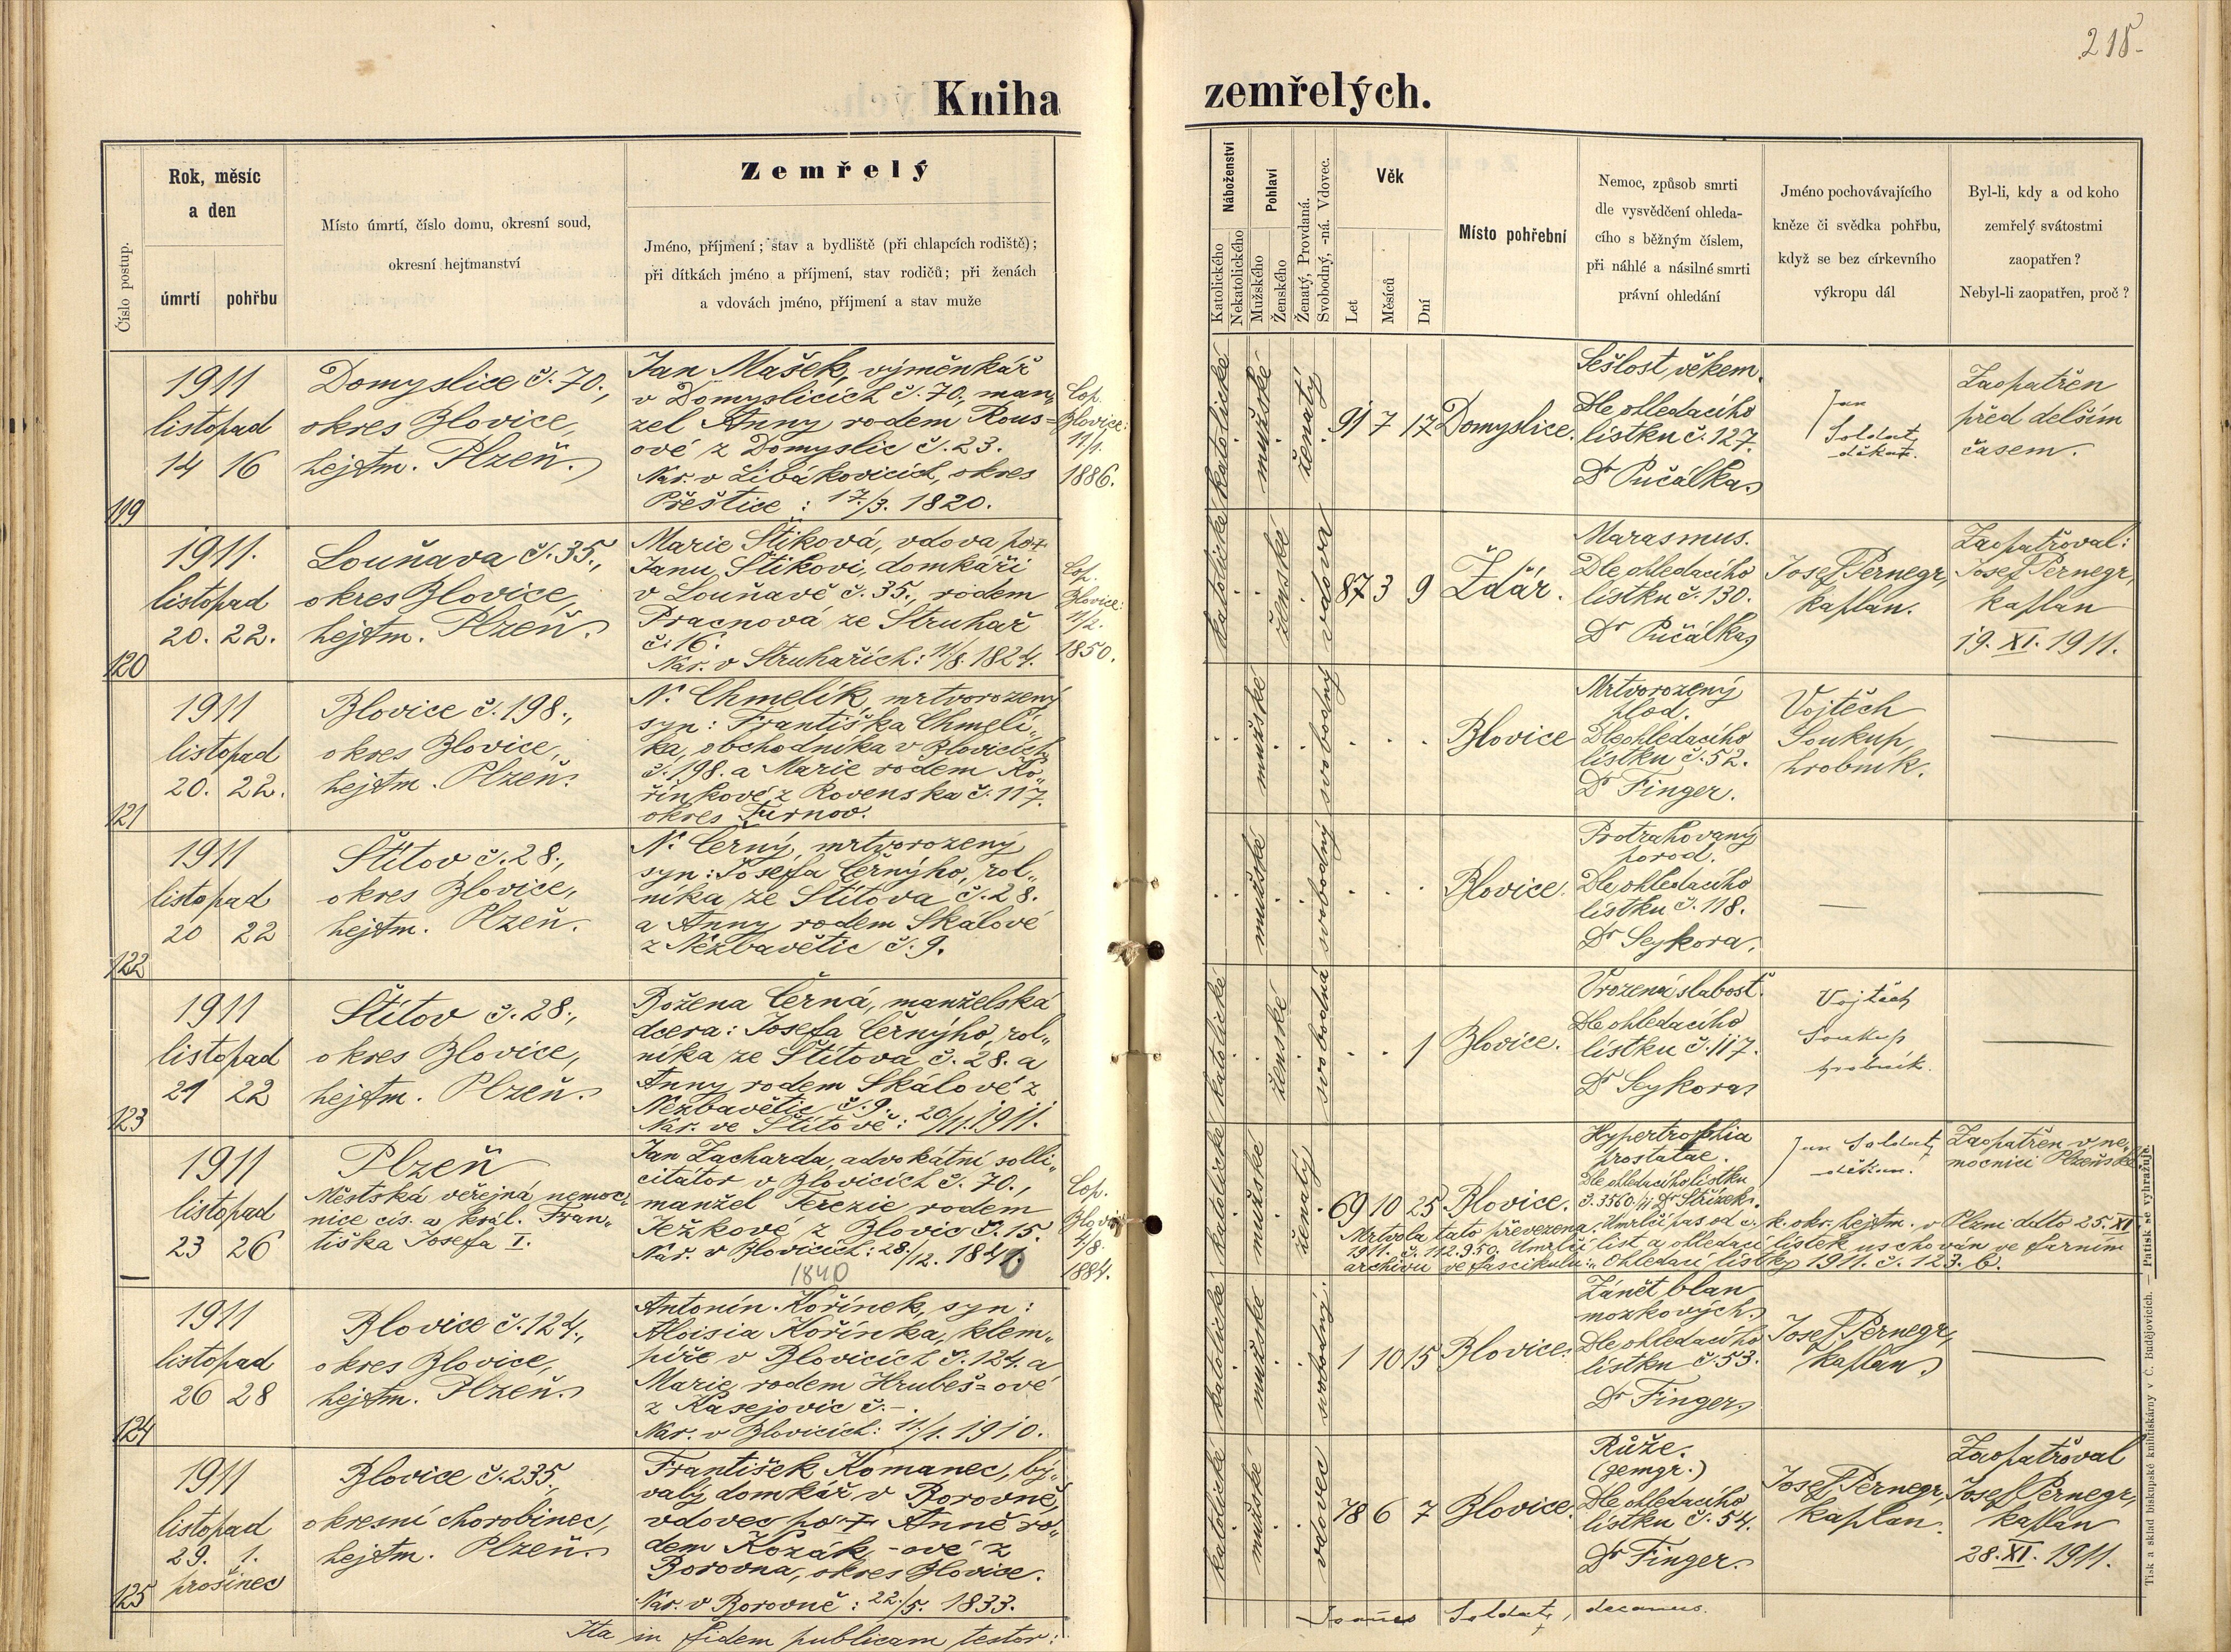 218.
Kniha zemřelých.
Číslo postup.
Rok, měsíc
a den
úmrtí pohřbu
Místo úmrtí, číslo domu, okresní soud,
okresní hejtmanství
Zemřelý
Jméno, příjmení; stav a bydliště (při chlapcích rodiště);
při dítkách jméno a příjmení, stav rodičů; při ženách
a vdovách jméno, příjmení a stav muže
Náboženství
Katolického
Nekatolického
Pohlaví
Mužského
Ženského
Ženatý, Provdaná.
Svobodný, -ná. Vdovec.
Věk
Let
Měsíců
Dní
Místo pohřební
Nemoc, způsob smrti
dle vysvědčení ohleda-
cího s běžným číslem,
při náhlé a násilné smrti
právní ohledání
Jméno pochovávajícího
kněze či svědka pohřbu,
když se bez církevního
výkropu dál
Byl-li, kdy a od koho
zemřelý svátostmi
zaopatřen?
Nebyl-li zaopatřen, proč?
119
1911
listopad
14 16
Domyslice č. 70.,
okres Blovice,
hejtm. Plzeň.
Jan Mašek, výměnkář
v Domyslicích č. 70., man„
žel Anny rodem Rous=
ové z Domyslic č. 23.
Nar. v Libákovicích, okres
Přeštice: 17./3. 1820.
Cop.
Blovice:
11/1.
1886.
katolické
mužské
ženatý
91 7 17
Domyslice.
Sešlost věkem.
Dle ohledacího
lístku č. 127.
Dr Pučálka
Jan
Soldát,
děkan.
Zaopatřen
před delším
časem.
120
1911.
listopad
20. 22.
Louňava č. 35.,
okres Blovice,
hejtm. Plzeň.
Marie Štiková, vdova po †
Janu Štikovi, domkáři
v Louňavě č. 35., rodem
Pracnová ze Struhař
č. 16.
Nar. v Struhařích: 11./8. 1824.
Cop.
Blovice:
11/2.
1850.
katolické
ženské
vdova
87 3 9
Ždár.
Marasmus.
Dle ohledacího
lístku č. 130.
Dr Pučálka
Josef Pernegr,
kaplan.
Zaopatřoval:
Josef Pernegr,
kaplan
19. XI. 1911.
121
1911
listopad
20. 22.
Blovice č. 198.,
okres Blovice,
hejtm. Plzeň.
N. Chmelík, mrtvorozený
syn: Františka Chmelí„
ka, obchodníka v Blovicích
č. 198. a Marie rodem Ko„
řínkové z Rovenska č. 117.
okres Turnov.
mužské
svobodný
Blovice
Mrtvorozený
plod.
Dle ohledacího
lístku č. 52.
Dr Finger.
Vojtěch
Soukup,
hrobník.
—
122
1911
listopad
20 22
Štítov č. 28.,
okres Blovice,
hejtm. Plzeň.
N. Černý, mrtvorozený
syn: Josefa Černýho, rol„
níka ze Štítova č. 28.
a Anny rodem Skálové
z Nezbavětic č. 9.
mužské
svobodný
Blovice.
Protrahovaný
porod.
Dle ohledacího
lístku č. 118.
Dr Seykora.
—
—
123
1911
listopad
21 22
Štítov č. 28.,
okres Blovice,
hejtm. Plzeň.
Božena Černá, manželská
dcera: Josefa Černýho, rol„
níka ze Štítova č. 28. a
Anny rodem Skálové z
Nezbavětic č. 9.
Nar. ve Štítově: 20/11. 1911.
katolické
ženské
svobodná
1
Blovice.
Vrozená slabost.
Dle ohledacího
lístku č. 117.
Dr Seykora
Vojtěch
Soukup
hrobník.
—
—
1911
listopad
23 26
Plzeň
Městská veřejná nemoc„
nice cís. a král. Fran„
tiška Josefa I.
Jan Zacharda, advokátní solli„
citátor v Blovicích č. 70.,
manžel Terezie rodem
Ježkové z Blovic č. 15.
Nar. v Blovicích: 28./12. 1841.
1840
Cop.
Blovic
4/8.
1884.
katolické
mužské
ženatý
69 10 25
Blovice.
Hypertrophia
prostatae.
Dle ohledacího lístku
č. 3560/11 Dr Střízek.
Jan Soldát,
děkan.
Zaopatřen v ne„
mocnici Plzeňské
Mrtvola tato převezena. Úmrlčí pas od c. k. okr. hejtm. v Plzni ddto 25. XI.
1911. č. 112.950. Úmrlčí list a ohledací lístek uschován ve farním
archivu ve fascikulu: „Ohledací lístky 1911. č. 123. b.
124
1911
listopad
26 28
Blovice č. 124.,
okres Blovice,
hejtm. Plzeň.
Antonín Kořínek, syn:
Aloisia Kořínka, klem„
píře v Blovicích č. 124. a
Marie rodem Hrubeš=ové
z Kasejovic č. –.
Nar. v Blovicích: 11./1. 1910.
katolické
mužské
svobodný
1 10 15
Blovice.
Zánět blan
mozkových.
Dle ohledacího
lístku č. 53.
Dr Finger
Josef Pernegr,
kaplan
—
125
1911
listopad
29. 1.
prosinec
Blovice č. 235.
okresní chorobinec,
hejtm. Plzeň.
František Komanec, bý„
valý domkář v Borovně,
vdovec po † Anně ro„
dem Kozák-ové z
Borovna, okres Blovice.
Nar. v Borovně: 22./5. 1833.
katolické
mužské
vdovec
78 6 7
Blovice.
Růže.
(gemgr.)
Dle ohledacího
lístku č. 54.
Dr Finger.
Josef Pernegr,
kaplan.
Zaopatřoval
Josef Pernegr,
kaplan
28. XI. 1911.
Ita in fidem publicam testor:
Joannes Soldát, decanus.
Tisk a sklad biskupské knihtiskárny v Č. Budějovicích. — Patisk se vyhražuje.